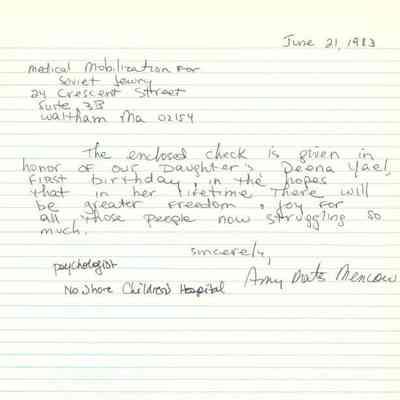 June 21, 1983
Medical Mobilization For
Soviet Jewry
24 Crescent Street
Suite 3B
Waltham Ma 02154
The enclosed check is given in
honor of our Daughter's, Deena Yael,
First birthday, in the hopes
that in her lifetime there will
be greater Freedom & Joy For
all those people now struggling so
much.
Sincerely,
Amy
psychologist
No. Shore Children's Hospital